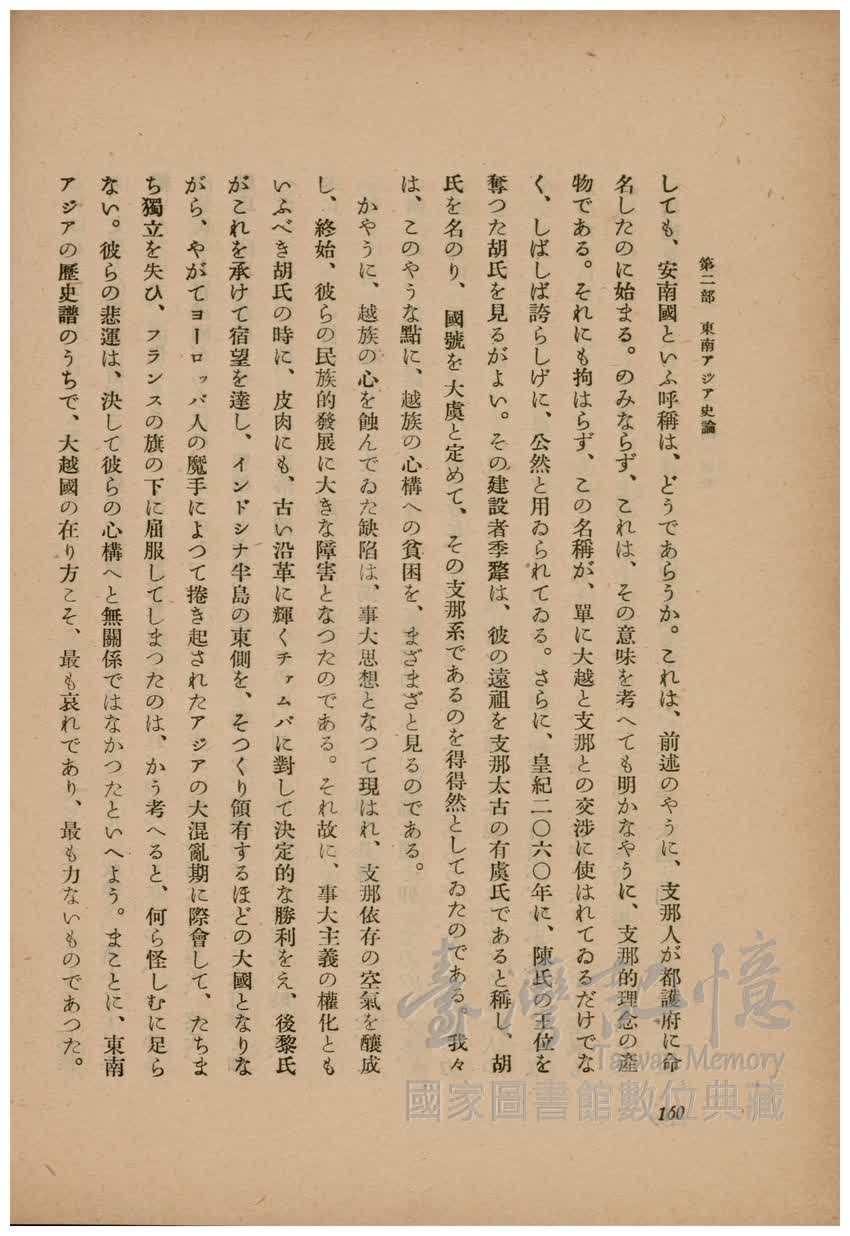 第二部　東南アジア史論
しても、安南國といふ呼稱は、どうであらうか。これは、前述のやうに、支那人が都護府に命
名したのに始まる。のみならず、これは、その意味を考へても明かなやうに、支那的理念の產
物である。それにも拘はらず、この名稱が、單に大越と支那との交涉に使はれてゐるだけでな
く、しばしば誇らしげに、公然と用ゐられてゐる。さらに、皇紀二〇六〇年に、陳氏の王位を
奪つた胡氏を見るがよい。その建設者季犛は、彼の遠祖を支那太古の有虞氏であると稱し、胡
氏を名のり、國號を大虞と定めて、その支那系であるのを得得然としてゐたのである。我々
は、このやうな點に、越族の心構への貧困を、まざまざと見るのである。
かやうに、越族の心を蝕んでゐた缺陷は、事大思想となつて現はれ、支那依存の空氣を釀成
し、終始、彼らの民族的發展に大きな障害となつたのである。それ故に、事大主義の權化とも
いふべき胡氏の時に、皮肉にも、古い沿革に輝くチァムパに對して決定的な勝利をえ、後黎氏
がこれを承けて宿望を達し、インドシナ半島の東側を、そつくり領有するほどの大國となりな
がら、やがてヨーロッパ人の魔手によつて捲き起されたアジアの大混亂期に際會して、たちま
ち獨立を失ひ、フランスの旗の下に屈服してしまつたのは、かう考へると、何ら怪しむに足ら
ない。彼らの悲運は、決して彼らの心構へと無關係ではなかつたといへよう。まことに、東南
アジアの歷史譜のうちで、大越國の在り方こそ、最も哀れであり、最も力ないものであつた。
臺灣記憶
Taiwan Memory
國家圖書館數位典藏
160